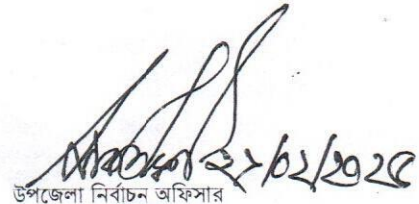 ২৭/০২/২০২৫
উপজেলা নির্বাচন অফিসার